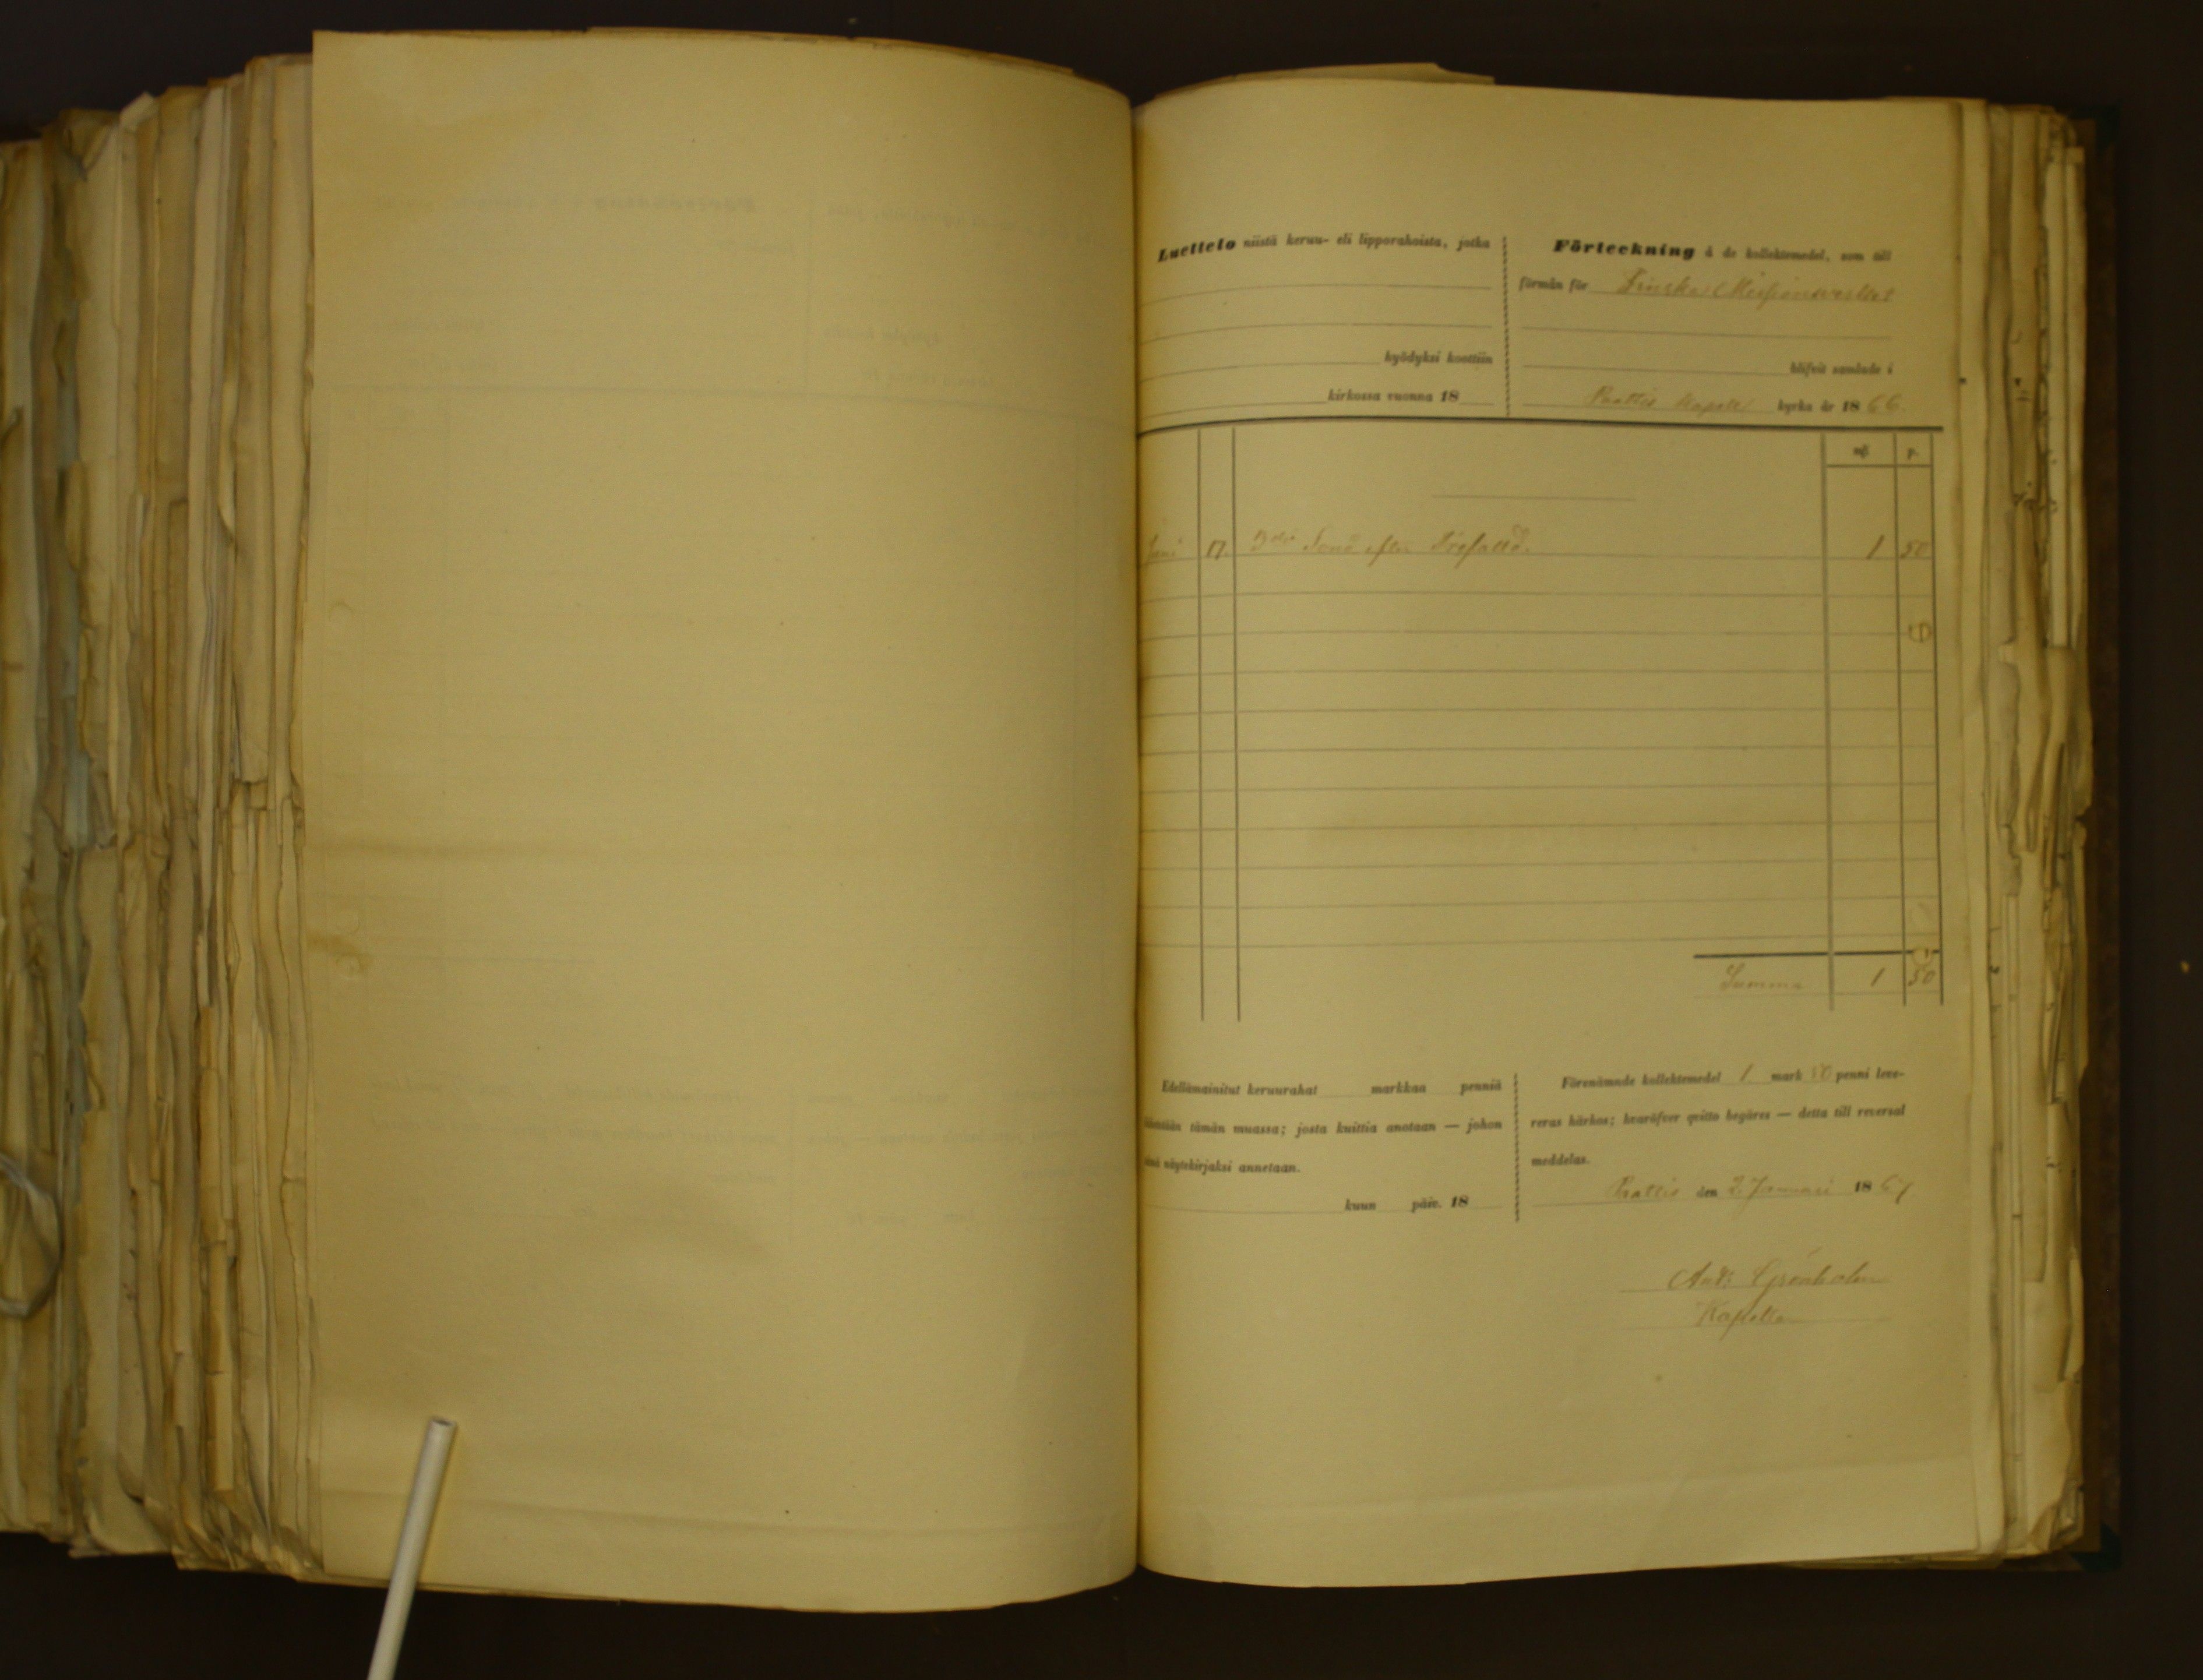 Luettelo niistä keruu- eli lipporahoista, jotka
hyödyksi koottiin
kirkossa vuonna 18
Förteckning å de kollektemedel, som till
förmån för Finska Missionsverket
blifvit samlade i
Pattis Kapell kyrka år 1866.
mk p.
Juni 17. 3dje Sönd. efter Trefald. 1 50
Summa 1 50
Edellämainitut keruurahat markkaa penniä
lähetetään tämän muassa; josta kuittia anotaan — johon
tämä näytekirjaksi annetaan.
kuun päiv. 18
Förenämnde kollektemedel 1. mark 50 penni leve-
reras härhos; hvaröfver qvitto begäres — detta till reversal
meddelas.
den 2 Januari 1867
Grönholm